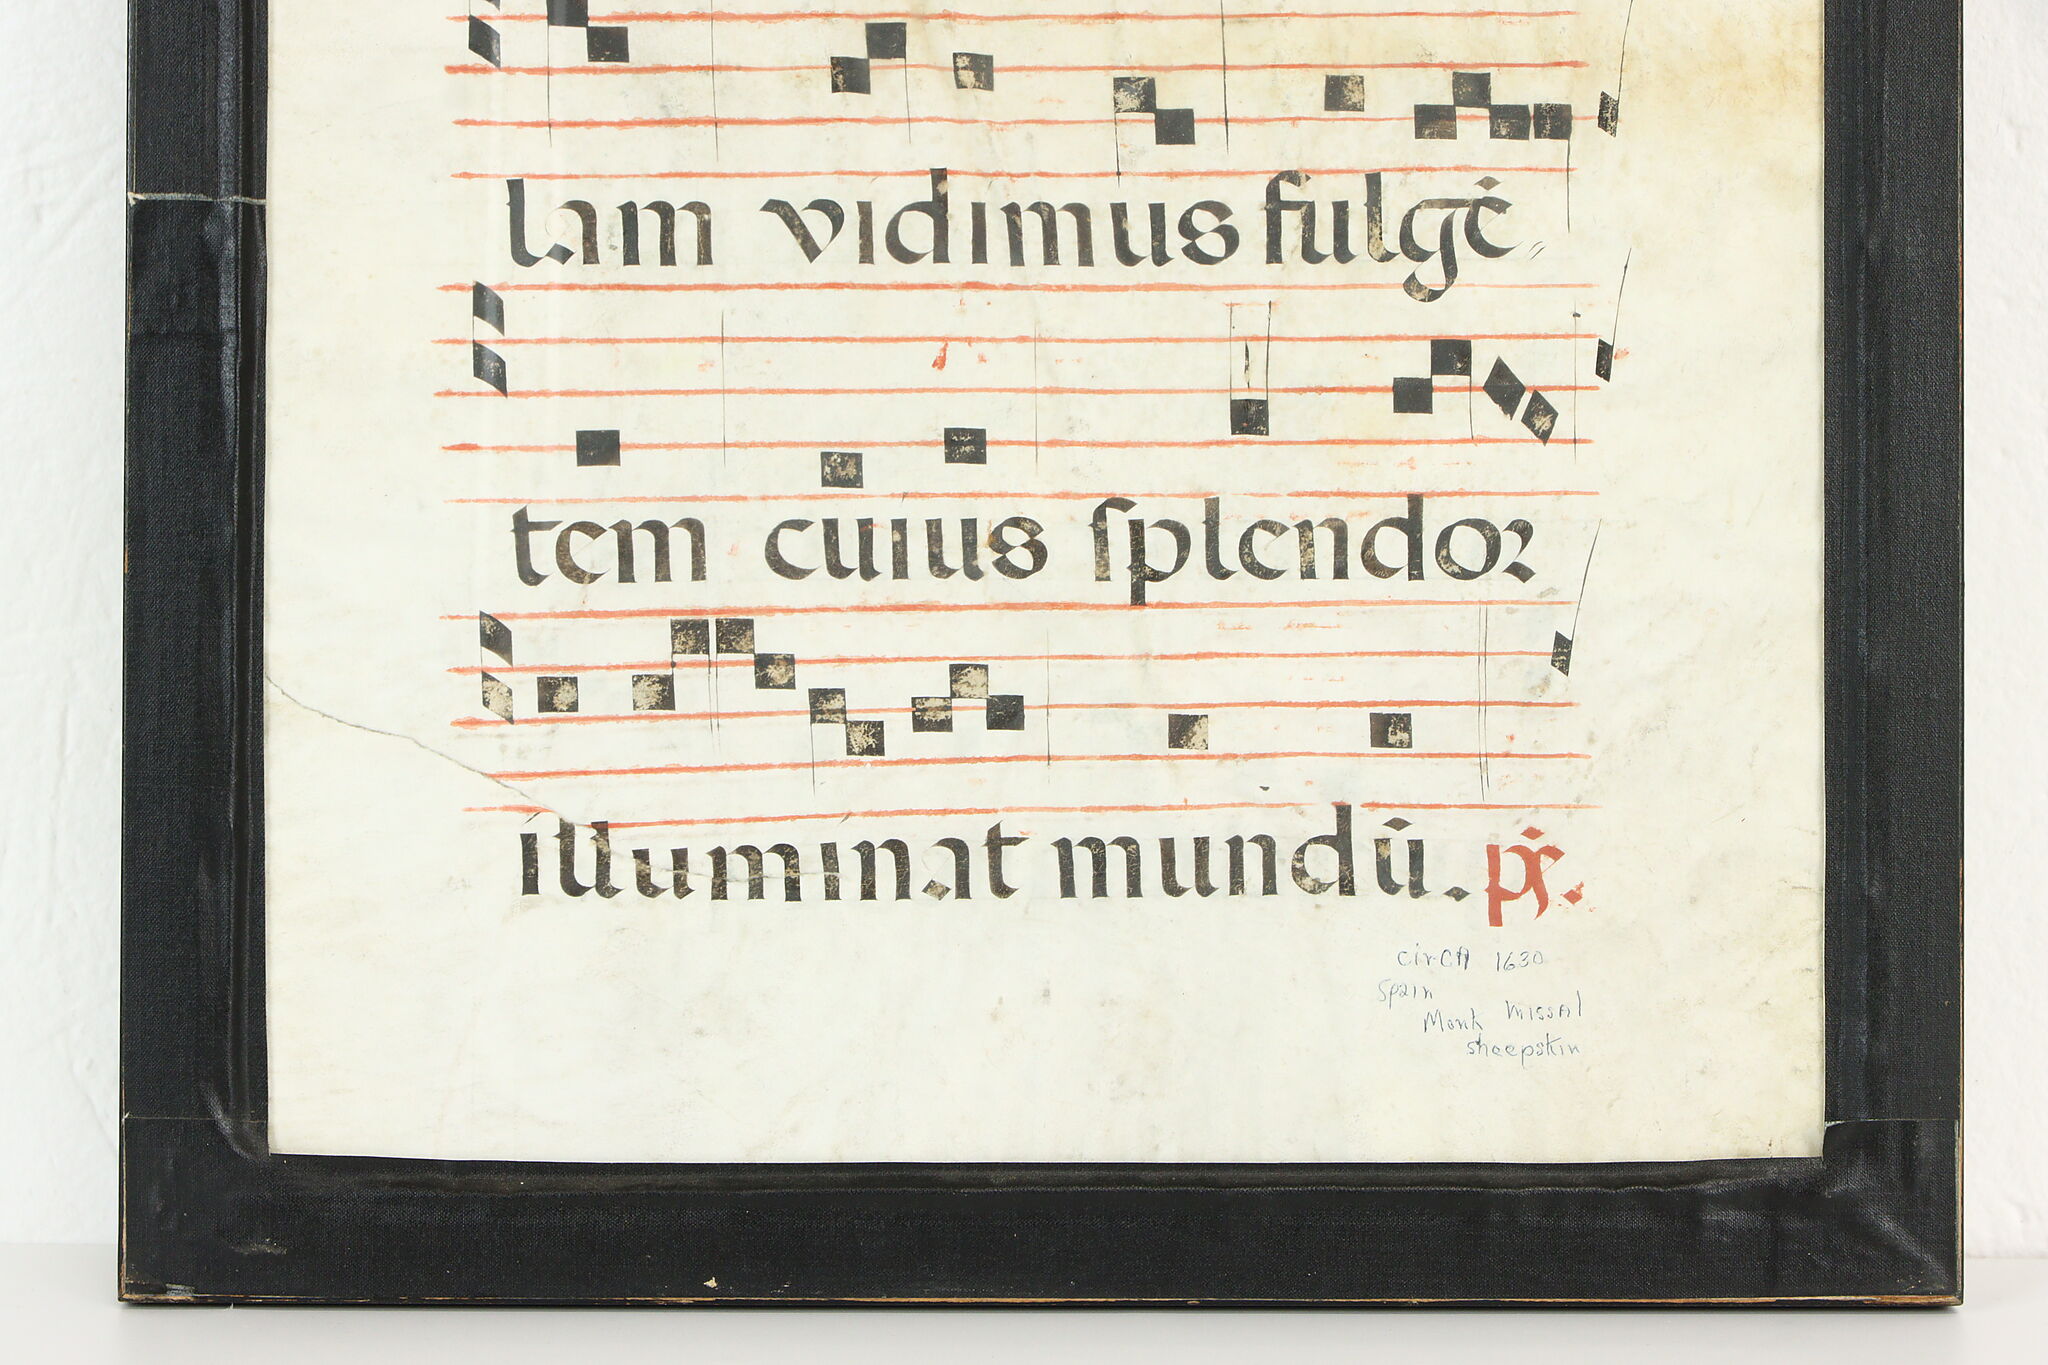 lam vidimus fulgē,,
tem cuius ſplendoꝛ
illuminat mundū. ps̄.
circA 1630
Spain
Monk missAl
sheepskin